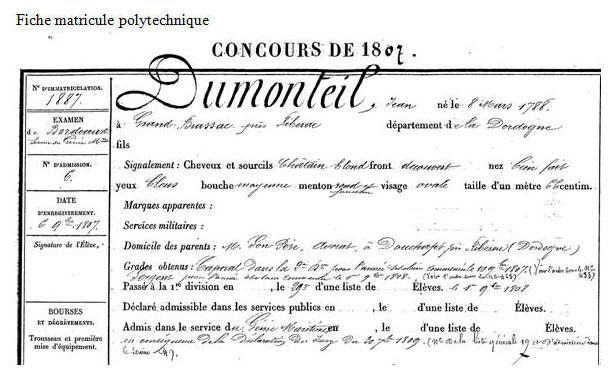 Fiche matricule polytechnique
CONCOURS DE 1807.
N° D'IMMATRICULATION.
1887.
EXAMEN
de Bordeaux
N° D'ADMISSION.
6.
DATE
D'ENREGISTREMENT.
6 9bre 1807.
Signature de l'Élève,
BOURSES
ET DÉGRÈVEMENTS.
Trousseau et première
mise d'équipement.
Dumonteil, Jean né le 8 Mars 1788.
à Grand Brassac près Riberac département de la Dordogne
fils
Signalement : Cheveux et sourcils Châtain blond front découvert nez bien fait
yeux bleus bouche moyenne menton rond visage ovale taille d'un mètre 66 centim.
Marques apparentes :
Services militaires :
Domicile des parents : Mr Son Père, avocat, à Douchapt près Riberac (Dordogne)
Grades obtenus : Caporal dans la 2e pour l'année scolaire commencée 1807.
Sergent pour l'année scolaire commencée le 1er 9bre 1808.
Passé à la 1re division en , le 29e d'une liste de Élèves. le 1er 9bre 1808
Déclaré admissible dans les services publics en , le d'une liste de Élèves.
Admis dans le service du Génie Maritime en , le d'une liste de Élèves.
en conséquence de la Déclaration du Jury du 30 7bre 1809.